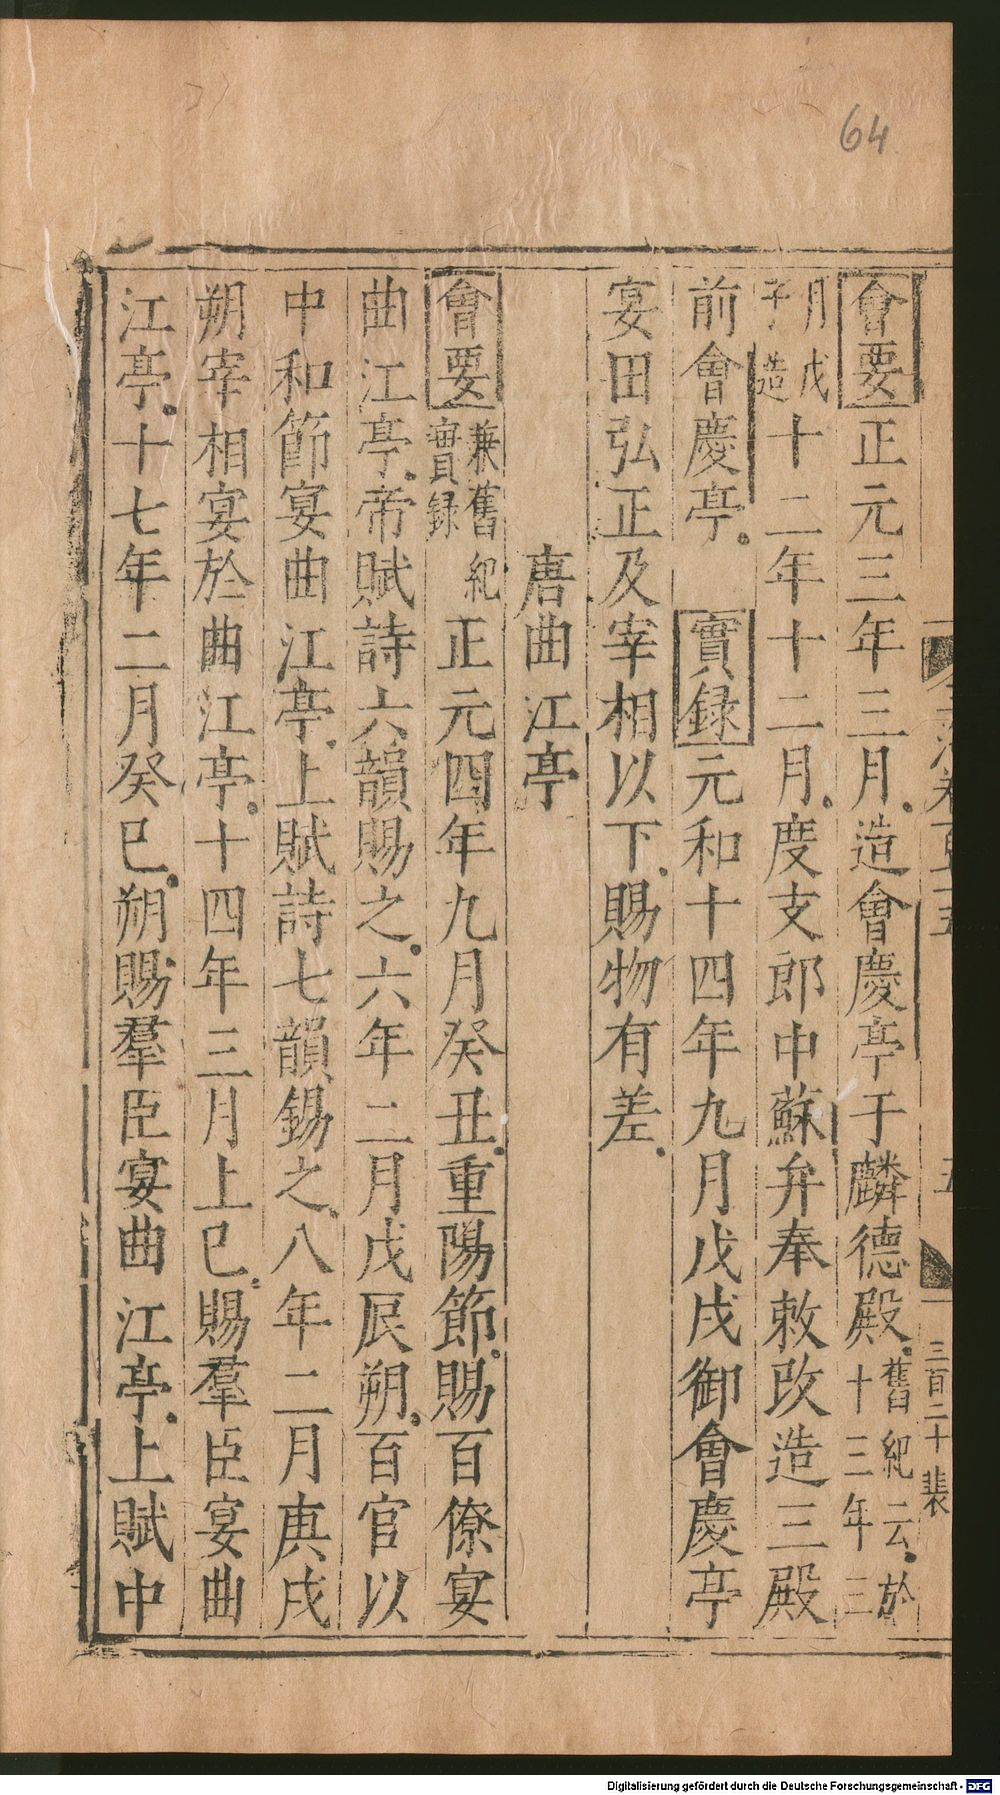 64
會要正元三年三月造會慶亭于麟德殿舊紀云於十三年三
月戊子造十二年十二月度支郎中蘇弁奉敕改造三殿
前會慶亭 實録元和十四年九月戊戌御會慶亭
宴田弘正及宰相以下賜物有差
唐曲江亭
會要兼舊紀實録正元四年九月癸丑重陽節賜百僚宴
曲江亭帝賦詩六韻賜之六年二月戊辰朔百官以
中和節宴曲江亭上賦詩七韻錫之八年二月庚戌
朔宰相宴於曲江亭十四年三月上巳賜羣臣宴曲
江亭十七年二月癸巳朔賜羣臣宴曲江亭上賦中
三百二十 裴
Digitalisierung gefördert durch die Deutsche Forschungsgemeinschaft - DFG